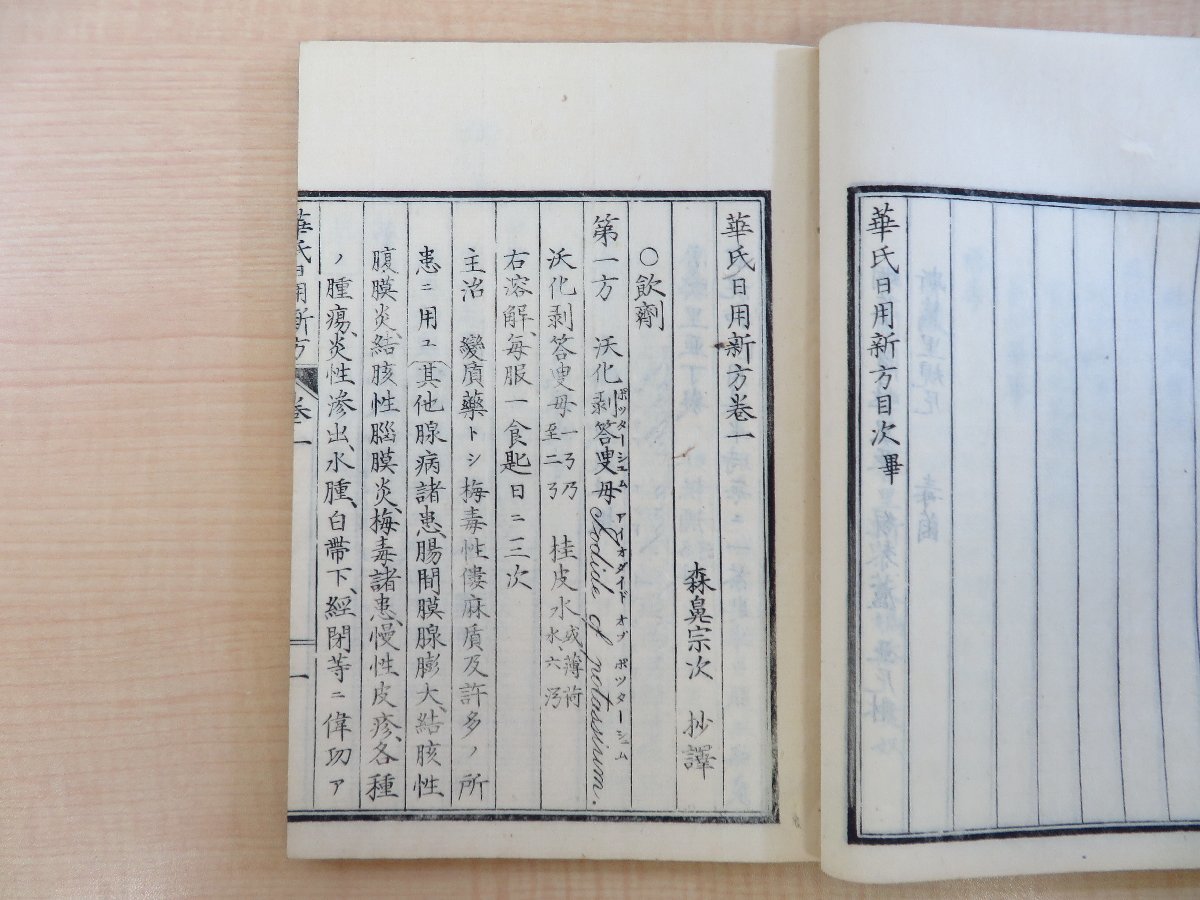 華氏日用新方目次畢
華氏日用新方卷一
森鼻宗次 抄譯
○飲劑
第一方 沃化剥答叟母 Iodide of potassium.
ポッターシュム アイオダイド オブ ポッターシュム
沃化剥答叟母 桂皮水 或薄荷水六
右溶解、毎服一食匙日ニ三次
主治 變質藥トシ梅毒性僂麻質及許多ノ所
患ニ用ユ(其他腺病諸患、腸間膜腺膨大、結胲性
腹膜炎、結胲性腦膜炎、梅毒諸患、慢性皮疹、各種
ノ腫瘍、炎性滲出、水腫、白帶下、經閉等ニ偉功ア
華氏日用新方 卷一 一